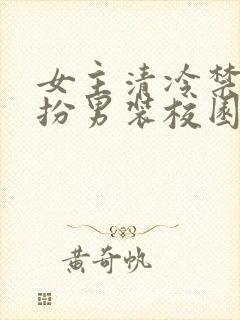 女主清冷禁
扮男装校园
黄奇帆